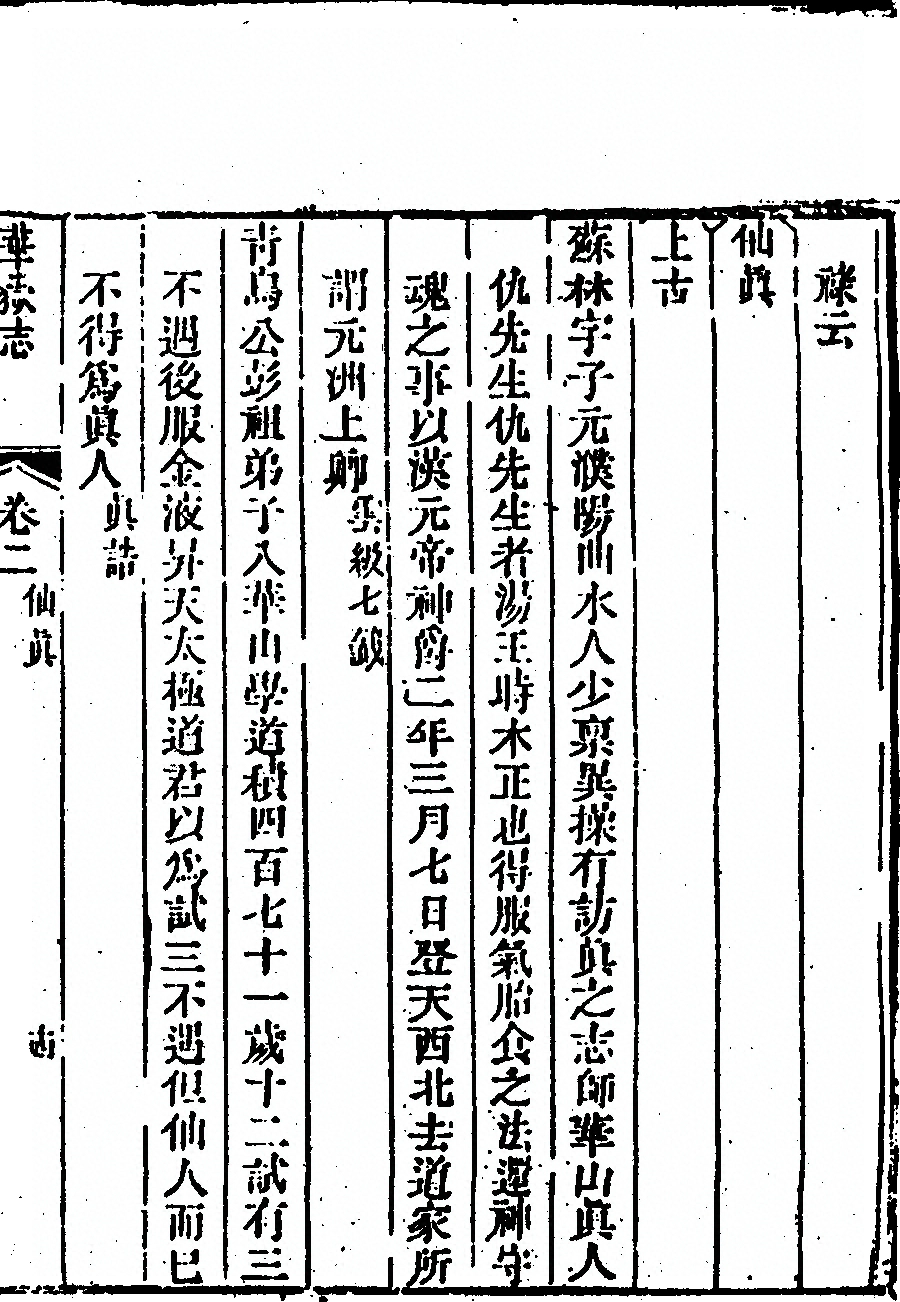 祿云
仙眞
上古
蘇林字子元濮陽曲水人少稟異操有訪眞之志師華山眞人
仇先生仇先生者湯王時木正也得服氣胎食之法還神守
魂之事以漢元帝神爵二年三月七日登天西北去道家所
謂元洲上卿雲級七籤
青烏公彭祖弟子入華山學道積四百七十一歲十二試有三
不過後服金液昇天太極道君以爲試三不過但仙人而已
不得爲眞人眞誥
華嶽志 卷二 仙眞